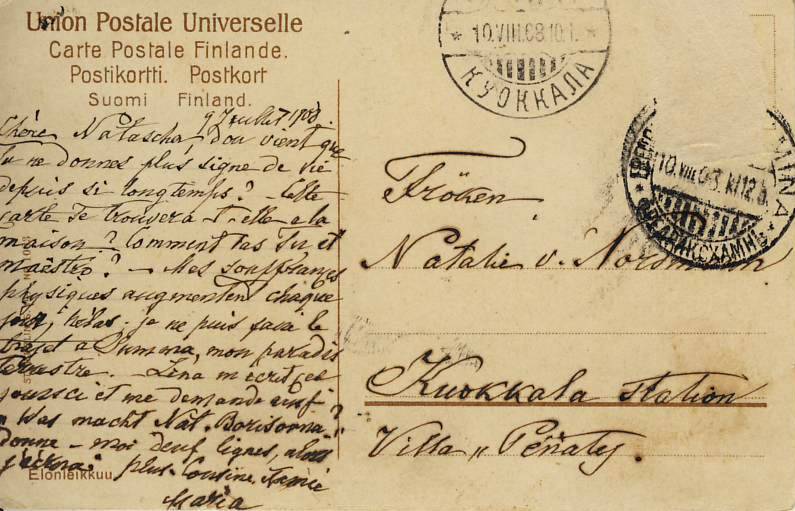 Union Postale Universelle
Carte Postale Finlande.
Postikortti. Postkort
Suomi Finland.
9 Juillet 1908.
Chère Natascha! D'ou vient que
tu ne donnes plus signe de vie
depuis si longtemps? Cette
carte te trouvera-t-elle a la
maison? Comment vas tu et
maëstro? — Mes souffrances
physiques augmentent chaque
jour, hélas. je ne puis faire le
trajet a Summa, mon paradis
terrestre. — Lina m'écrit ces
jours ci et me demande
"Was macht Nat. Borisovna?"
donne-moi deux lignes, alors
j'écrirai plus. Cousine Annie
Maria
Elonleikkuu.
10.VIII.08 10.1.
КУОККАЛА
10.VIII.03. KI.12.
Fröken
Natalie v. Nordmann
Kuokkala station
Villa „Penaty.